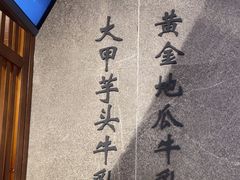 黃金地瓜牛
大甲芋头牛乳